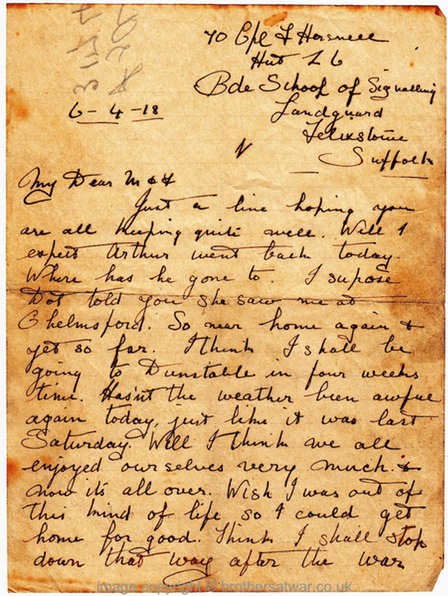 70 Cpl F Horsnell
Hut L 6
Bde School of Signalling
6-4-18
Landguard
Felixstowe
Suffolk
My Dear M & F
Just a line hoping you
are all keeping quite well. Well I
expect Arthur went back today.
Where has he gone to. I supose
Dot told you she saw me at
Chelmsford. So near home again &
yet so far. I think I shall be
going to Dunstable in four weeks
time. Hasnt the weather been awful
again today, just like it was last
Saturday. Well I think we all
enjoyed ourselves very much &
now its all over. Wish I was out of
this kind of life, so I could get
home for good. Think I shall stop
down that way after the war
image copyright © brothersatwar.co.uk